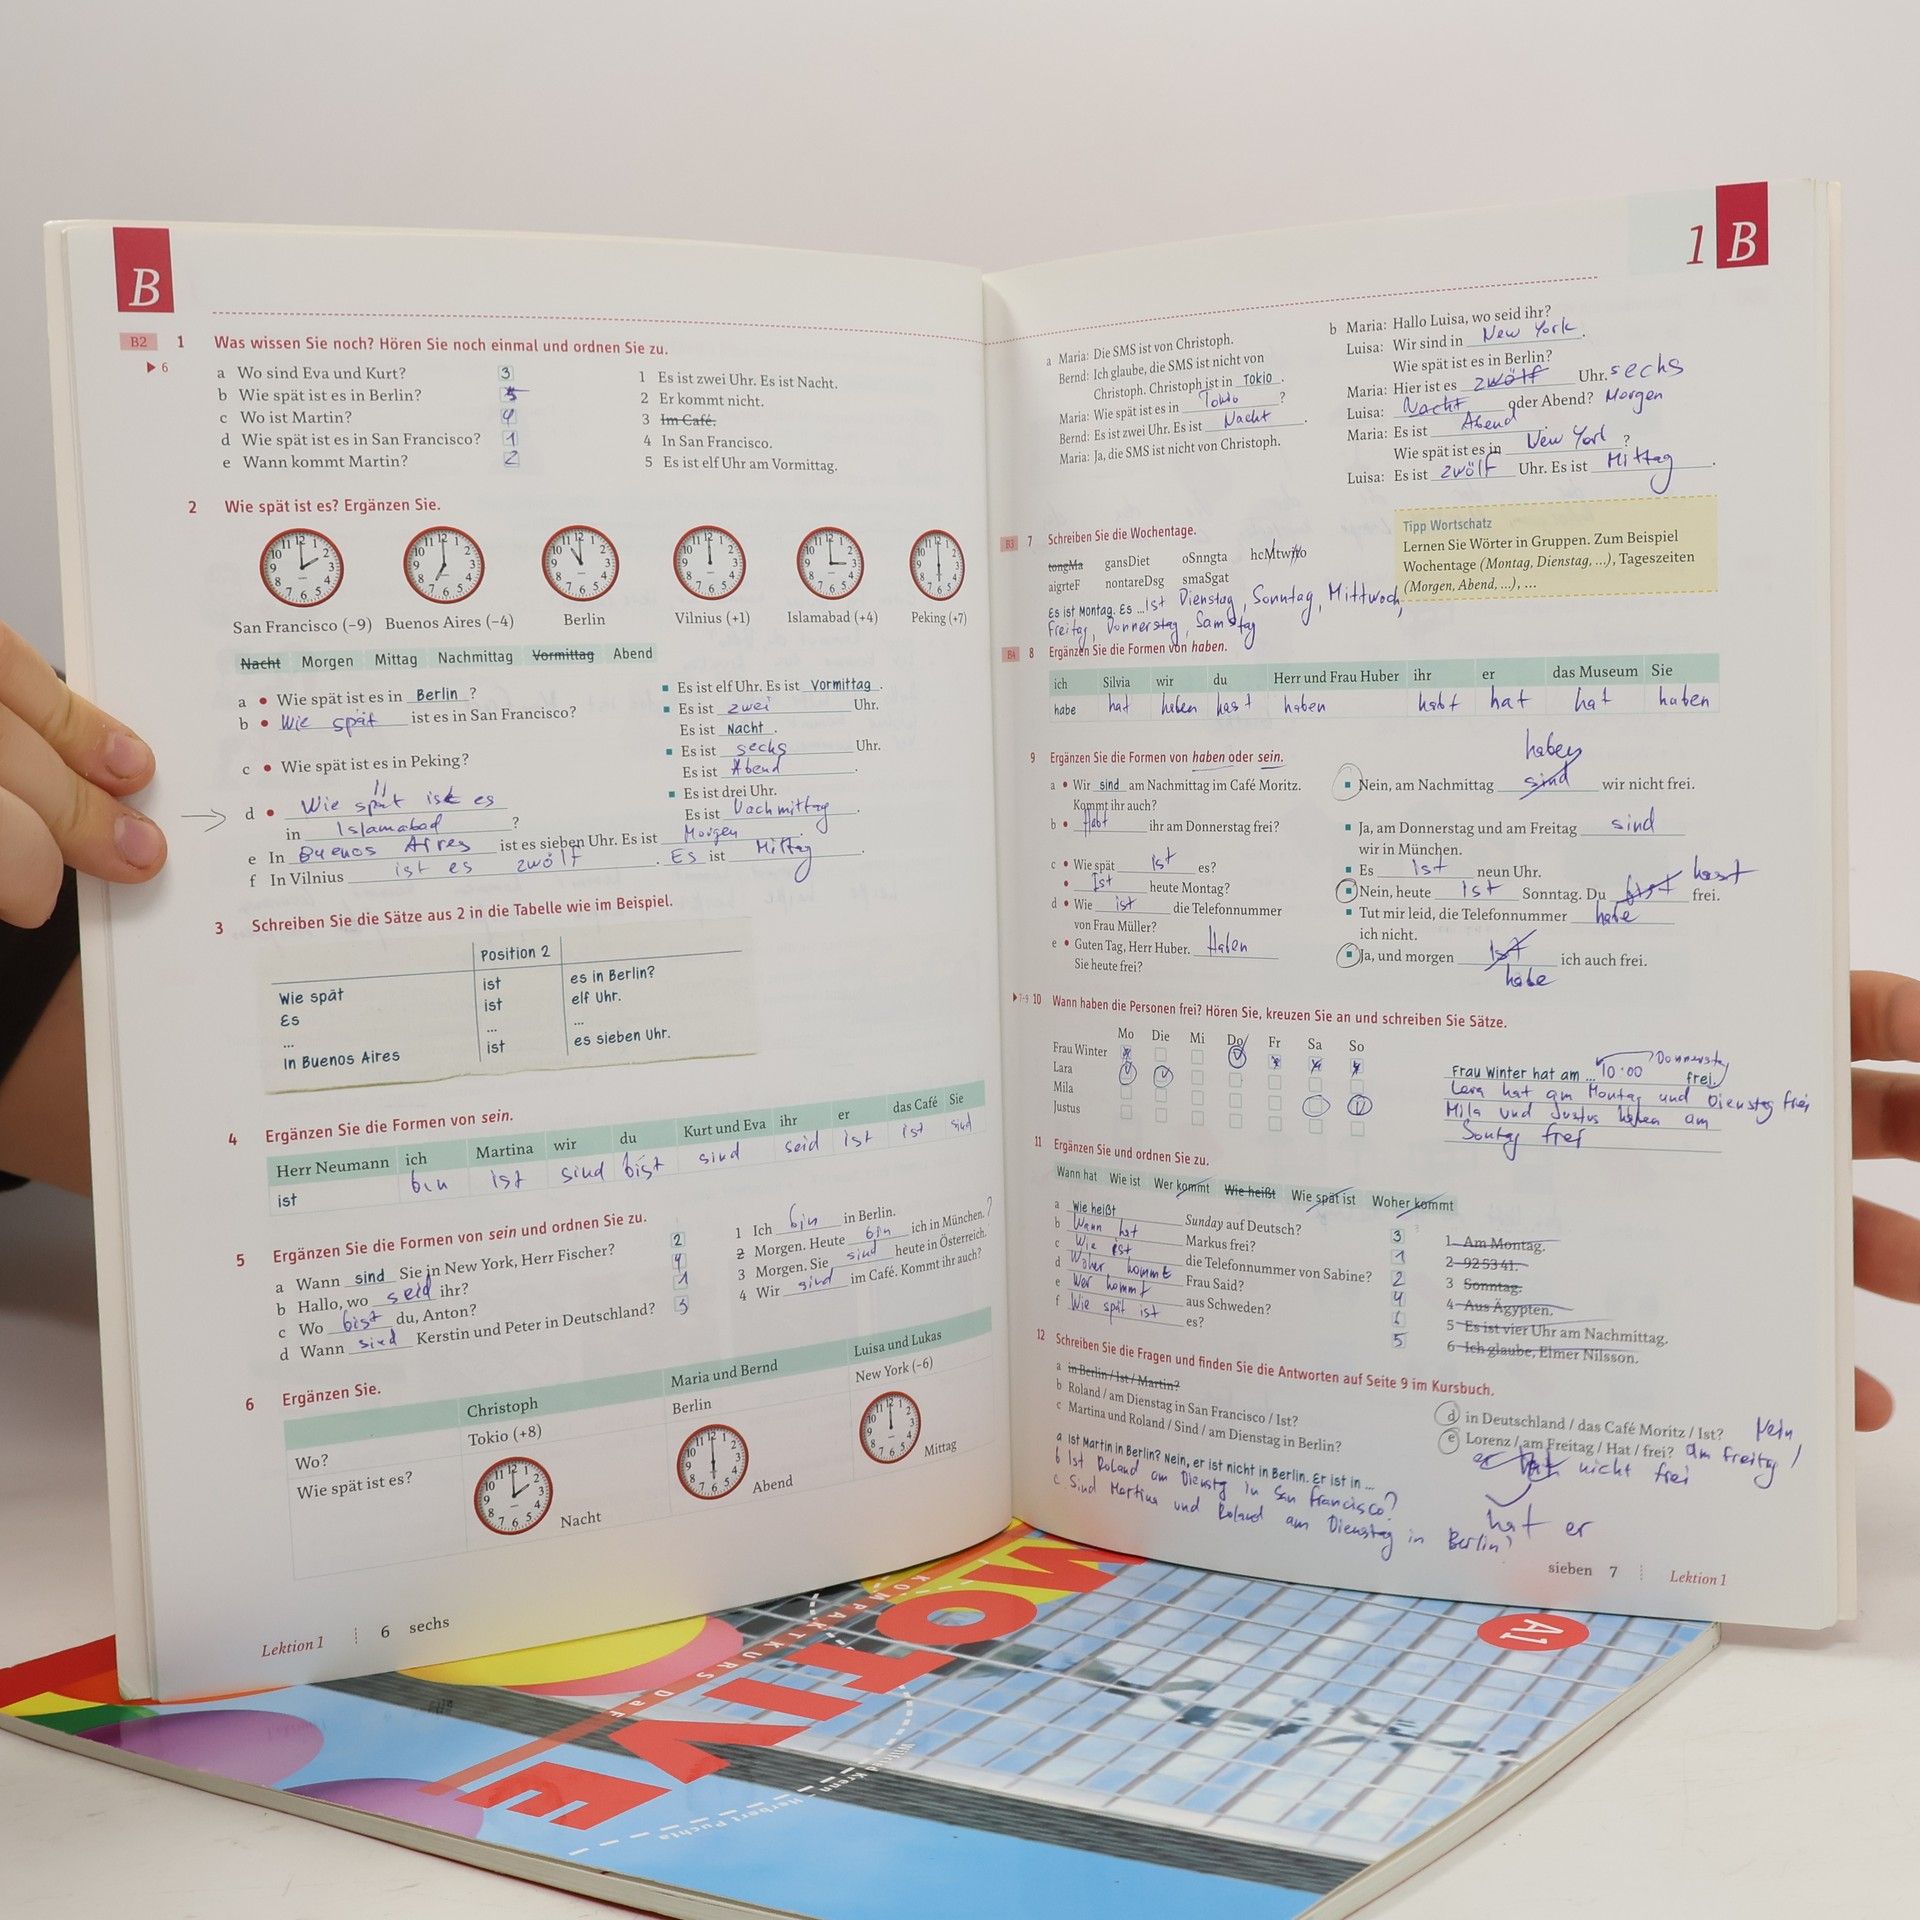 B
B2 1 Was wissen Sie noch? Hören Sie noch einmal und ordnen Sie zu.
6
a Wo sind Eva und Kurt? 3
b Wie spät ist es in Berlin? 5
c Wo ist Martin? 4
d Wie spät ist es in San Francisco? 1
e Wann kommt Martin? 2
1 Es ist zwei Uhr. Es ist Nacht.
2 Er kommt nicht.
3 Im Café.
4 In San Francisco.
5 Es ist elf Uhr am Vormittag.
2 Wie spät ist es? Ergänzen Sie.
San Francisco (–9) Buenos Aires (–4) Berlin Vilnius (+1) Islamabad (+4) Peking (+7)
Nacht Morgen Mittag Nachmittag Vormittag Abend
a • Wie spät ist es in Berlin ?
Es ist elf Uhr. Es ist Vormittag .
b • Wie spät ist es in San Francisco?
Es ist zwei Uhr.
Es ist Nacht .
c • Wie spät ist es in Peking?
Es ist sechs Uhr.
Es ist Abend .
d • Wie spät ist es
in Islamabad ?
Es ist drei Uhr.
Es ist Nachmittag .
e In Buenos Aires ist es sieben Uhr. Es ist Morgen .
f In Vilnius ist es zwölf . Es ist Mittag .
3 Schreiben Sie die Sätze aus 2 in die Tabelle wie im Beispiel.
Position 2
Wie spät ist es in Berlin?
Es ist elf Uhr.
... ... ...
In Buenos Aires ist es sieben Uhr.
4 Ergänzen Sie die Formen von sein.
Herr Neumann ich Martina wir du Kurt und Eva ihr er das Café Sie
ist bin ist sind bist sind seid ist ist sind
5 Ergänzen Sie die Formen von sein und ordnen Sie zu.
a Wann sind Sie in New York, Herr Fischer? 2
b Hallo, wo seid ihr? 4
c Wo bist du, Anton? 1
d Wann sind Kerstin und Peter in Deutschland? 3
1 Ich bin in Berlin.
2 Morgen. Heute bin ich in München. ?
3 Morgen. Sie sind heute in Österreich.
4 Wir sind im Café. Kommt ihr auch?
6 Ergänzen Sie.
Christoph Maria und Bernd Luisa und Lukas
Wo? Tokio (+8) Berlin New York (–6)
Wie spät ist es? Nacht Abend Mittag
Lektion 1 6 sechs
1 B
a Maria: Die SMS ist von Christoph.
Bernd: Ich glaube, die SMS ist nicht von
Christoph. Christoph ist in Tokio .
Maria: Wie spät ist es in Tokio ?
Bernd: Es ist zwei Uhr. Es ist Nacht .
Maria: Ja, die SMS ist nicht von Christoph.
b Maria: Hallo Luisa, wo seid ihr?
Luisa: Wir sind in New York .
Wie spät ist es in Berlin?
Maria: Hier ist es zwölf Uhr. sechs
Luisa: Nacht oder Abend? Morgen
Maria: Es ist Abend .
Wie spät ist es in New York ?
Luisa: Es ist zwölf Uhr. Es ist Mittag .
B3 7 Schreiben Sie die Wochentage.
tongMa gansDiet oSnngta hcMtwito
aigrteF nontareDsg smaSgat
Es ist Montag. Es ... ist Dienstag, Sonntag, Mittwoch,
Freitag, Donnerstag, Samstag
Tipp Wortschatz
Lernen Sie Wörter in Gruppen. Zum Beispiel
Wochentage (Montag, Dienstag, ...), Tageszeiten
(Morgen, Abend, ...), ...
B4 8 Ergänzen Sie die Formen von haben.
ich Silvia wir du Herr und Frau Huber ihr er das Museum Sie
habe hat haben hast haben habt hat hat haben
9 Ergänzen Sie die Formen von haben oder sein.
haben
a • Wir sind am Nachmittag im Café Moritz.
Kommt ihr auch?
Nein, am Nachmittag sind wir nicht frei.
b • Habt ihr am Donnerstag frei?
Ja, am Donnerstag und am Freitag sind
wir in München.
c • Wie spät ist es?
Es ist neun Uhr.
• Ist heute Montag?
Nein, heute ist Sonntag. Du bist hast frei.
d • Wie ist die Telefonnummer
von Frau Müller?
Tut mir leid, die Telefonnummer habe
ich nicht.
e • Guten Tag, Herr Huber. Haben
Sie heute frei?
Ja, und morgen ist ich auch frei.
habe
7–9 10 Wann haben die Personen frei? Hören Sie, kreuzen Sie an und schreiben Sie Sätze.
Mo Die Mi Do Fr Sa So
Frau Winter
Lara
Mila
Justus
Donnerstag
Frau Winter hat am ... 10:00 frei.
Lara hat am Montag und Dienstag frei
Mila und Justus haben am
Sontag frei
11 Ergänzen und ordnen Sie zu.
Wann hat Wie ist Wer kommt Wie heißt Wie spät ist Woher kommt
a Wie heißt Sunday auf Deutsch? 3
b Wann hat Markus frei? 1
c Wie ist die Telefonnummer von Sabine? 2
d Woher kommt Frau Said? 4
e Wer kommt aus Schweden? 6
f Wie spät ist es? 5
1 Am Montag.
2 92 53 41.
3 Sonntag.
4 Aus Ägypten.
5 Es ist vier Uhr am Nachmittag.
6 Ich glaube, Elmer Nilsson.
12 Schreiben Sie die Fragen und finden Sie die Antworten auf Seite 9 im Kursbuch.
a in Berlin / Ist / Martin?
b Roland / am Dienstag in San Francisco / Ist?
c Martina und Roland / Sind / am Dienstag in Berlin?
d in Deutschland / das Café Moritz / Ist? Nein
e Lorenz / am Freitag / Hat / frei? am Freitag
er hat nicht frei
hat er
a Ist Martin in Berlin? Nein, er ist nicht in Berlin. Er ist in ...
b Ist Roland am Dienstg in San Francisco?
c Sind Martina und Roland am Dienstag in Berlin?
sieben 7 Lektion 1
MOTIVE
KOMPAKTKURS DaF
A1
Wilfried Krenn – Herbert Puchta